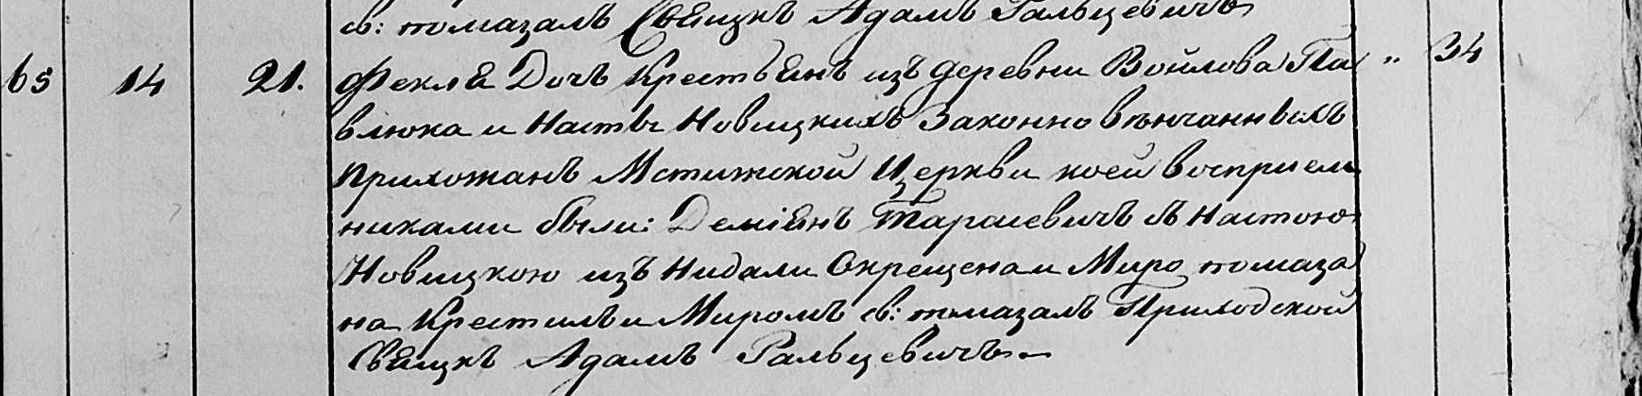 св: помазалъ Свящкъ Адамъ Гальцевичъ
65 14 21. Фекла Дочь Крестьянъ изъ деревни Войлова Па „ 34
влюка и Насты Новицкихъ Законно вѣнчанныхъ
прихожанъ Мстижской Церкви коей восприем
никами были: Деміянъ Тарасевичъ съ Настою
Новицкою изъ Нидали Окрещена и Миро помаза
на Крестилъ и Миромъ св: помазалъ Приходской
Свящкъ Адамъ Гальцевичъ